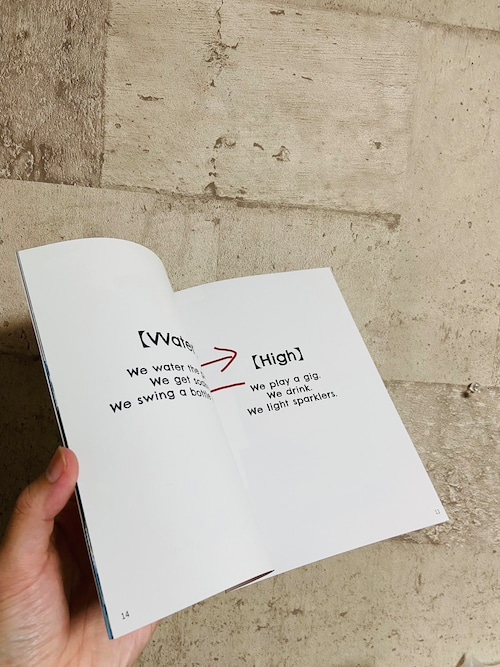 【Water
We water the
We get
We swing a
14
【High】
We play a gig.
We drink.
We light sparklers.